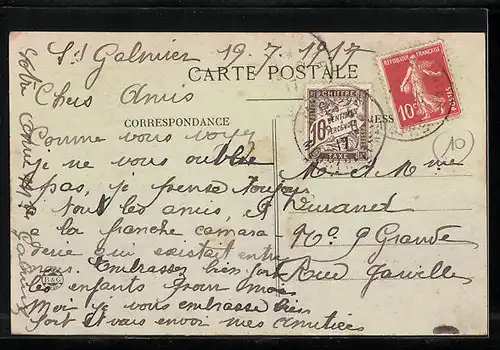 St Galmier 19.7.1917
CARTE POSTALE
Chers Amis
CORRESPONDANCE
RESS
Comme vous voyez
je ne vous oublie
pas, je pense toujours
a tout les amis, et
a la franche camara
derie qui existait entre
nous. Embrassez bien fort
les enfants pour moi
Moi je vous embrasse bien
fort et vais envoi mes amitiées
Votre
M. et Mme
Durand
No 9 Grande
Rue
RÉPUBLIQUE FRANÇAISE
POSTES
10c
CHIFFRE
10
CENTIMES
A PERCEVOIR
TAXE
10
B&G